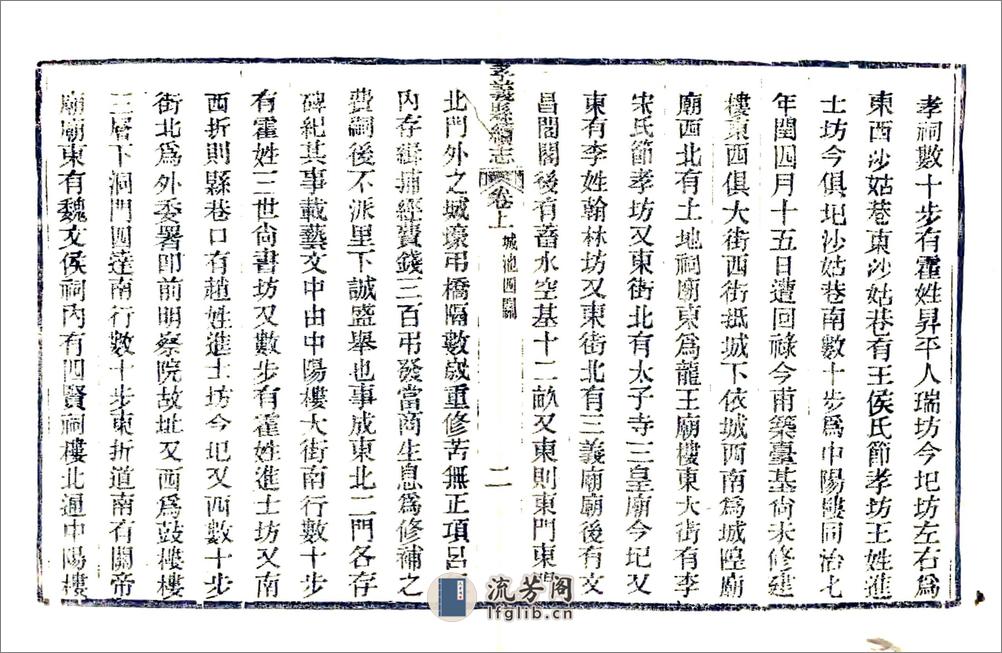 孝祠數十步有霍姓昇平人瑞坊今圯坊左右爲
東西沙姑巷東沙姑巷有王侯氏節孝坊王姓進
士坊今俱圯沙姑巷南數十步爲中陽樓同治七
年閏四月十五日遭回祿今甫築臺基尙未修建
樓東西俱大街西街抵城下依城西南爲城隍廟
廟西北有土地祠廟東爲龍王廟樓東大街有李
宋氏節孝坊又東街北有太子寺三皇廟今圯又
東有李姓翰林坊又東街北有三義廟廟後有文
昌閣閣後有蓄水空基十二畝又東則東門東
孝義縣續志
卷上
城池四關
二
北門外之城壕弔橋隔數歲重修苦無正項呂
內存緝捕經費錢三百弔發當商生息爲修補之
費嗣後不派里下誠盛舉也事成東北二門各存
碑紀其事載藝文中由中陽樓大街南行數十步
有霍姓三世尙書坊又數步有霍姓進士坊又南
西折則縣巷口有趙姓進士坊今圯又西數十步
街北爲外委署卽前明察院故址又西爲鼓樓樓
三層下洞門四達南行數十步東折道南有關帝
廟廟東有魏文侯祠內有四賢祠樓北通中陽樓
流芳阁
lfglib.cn